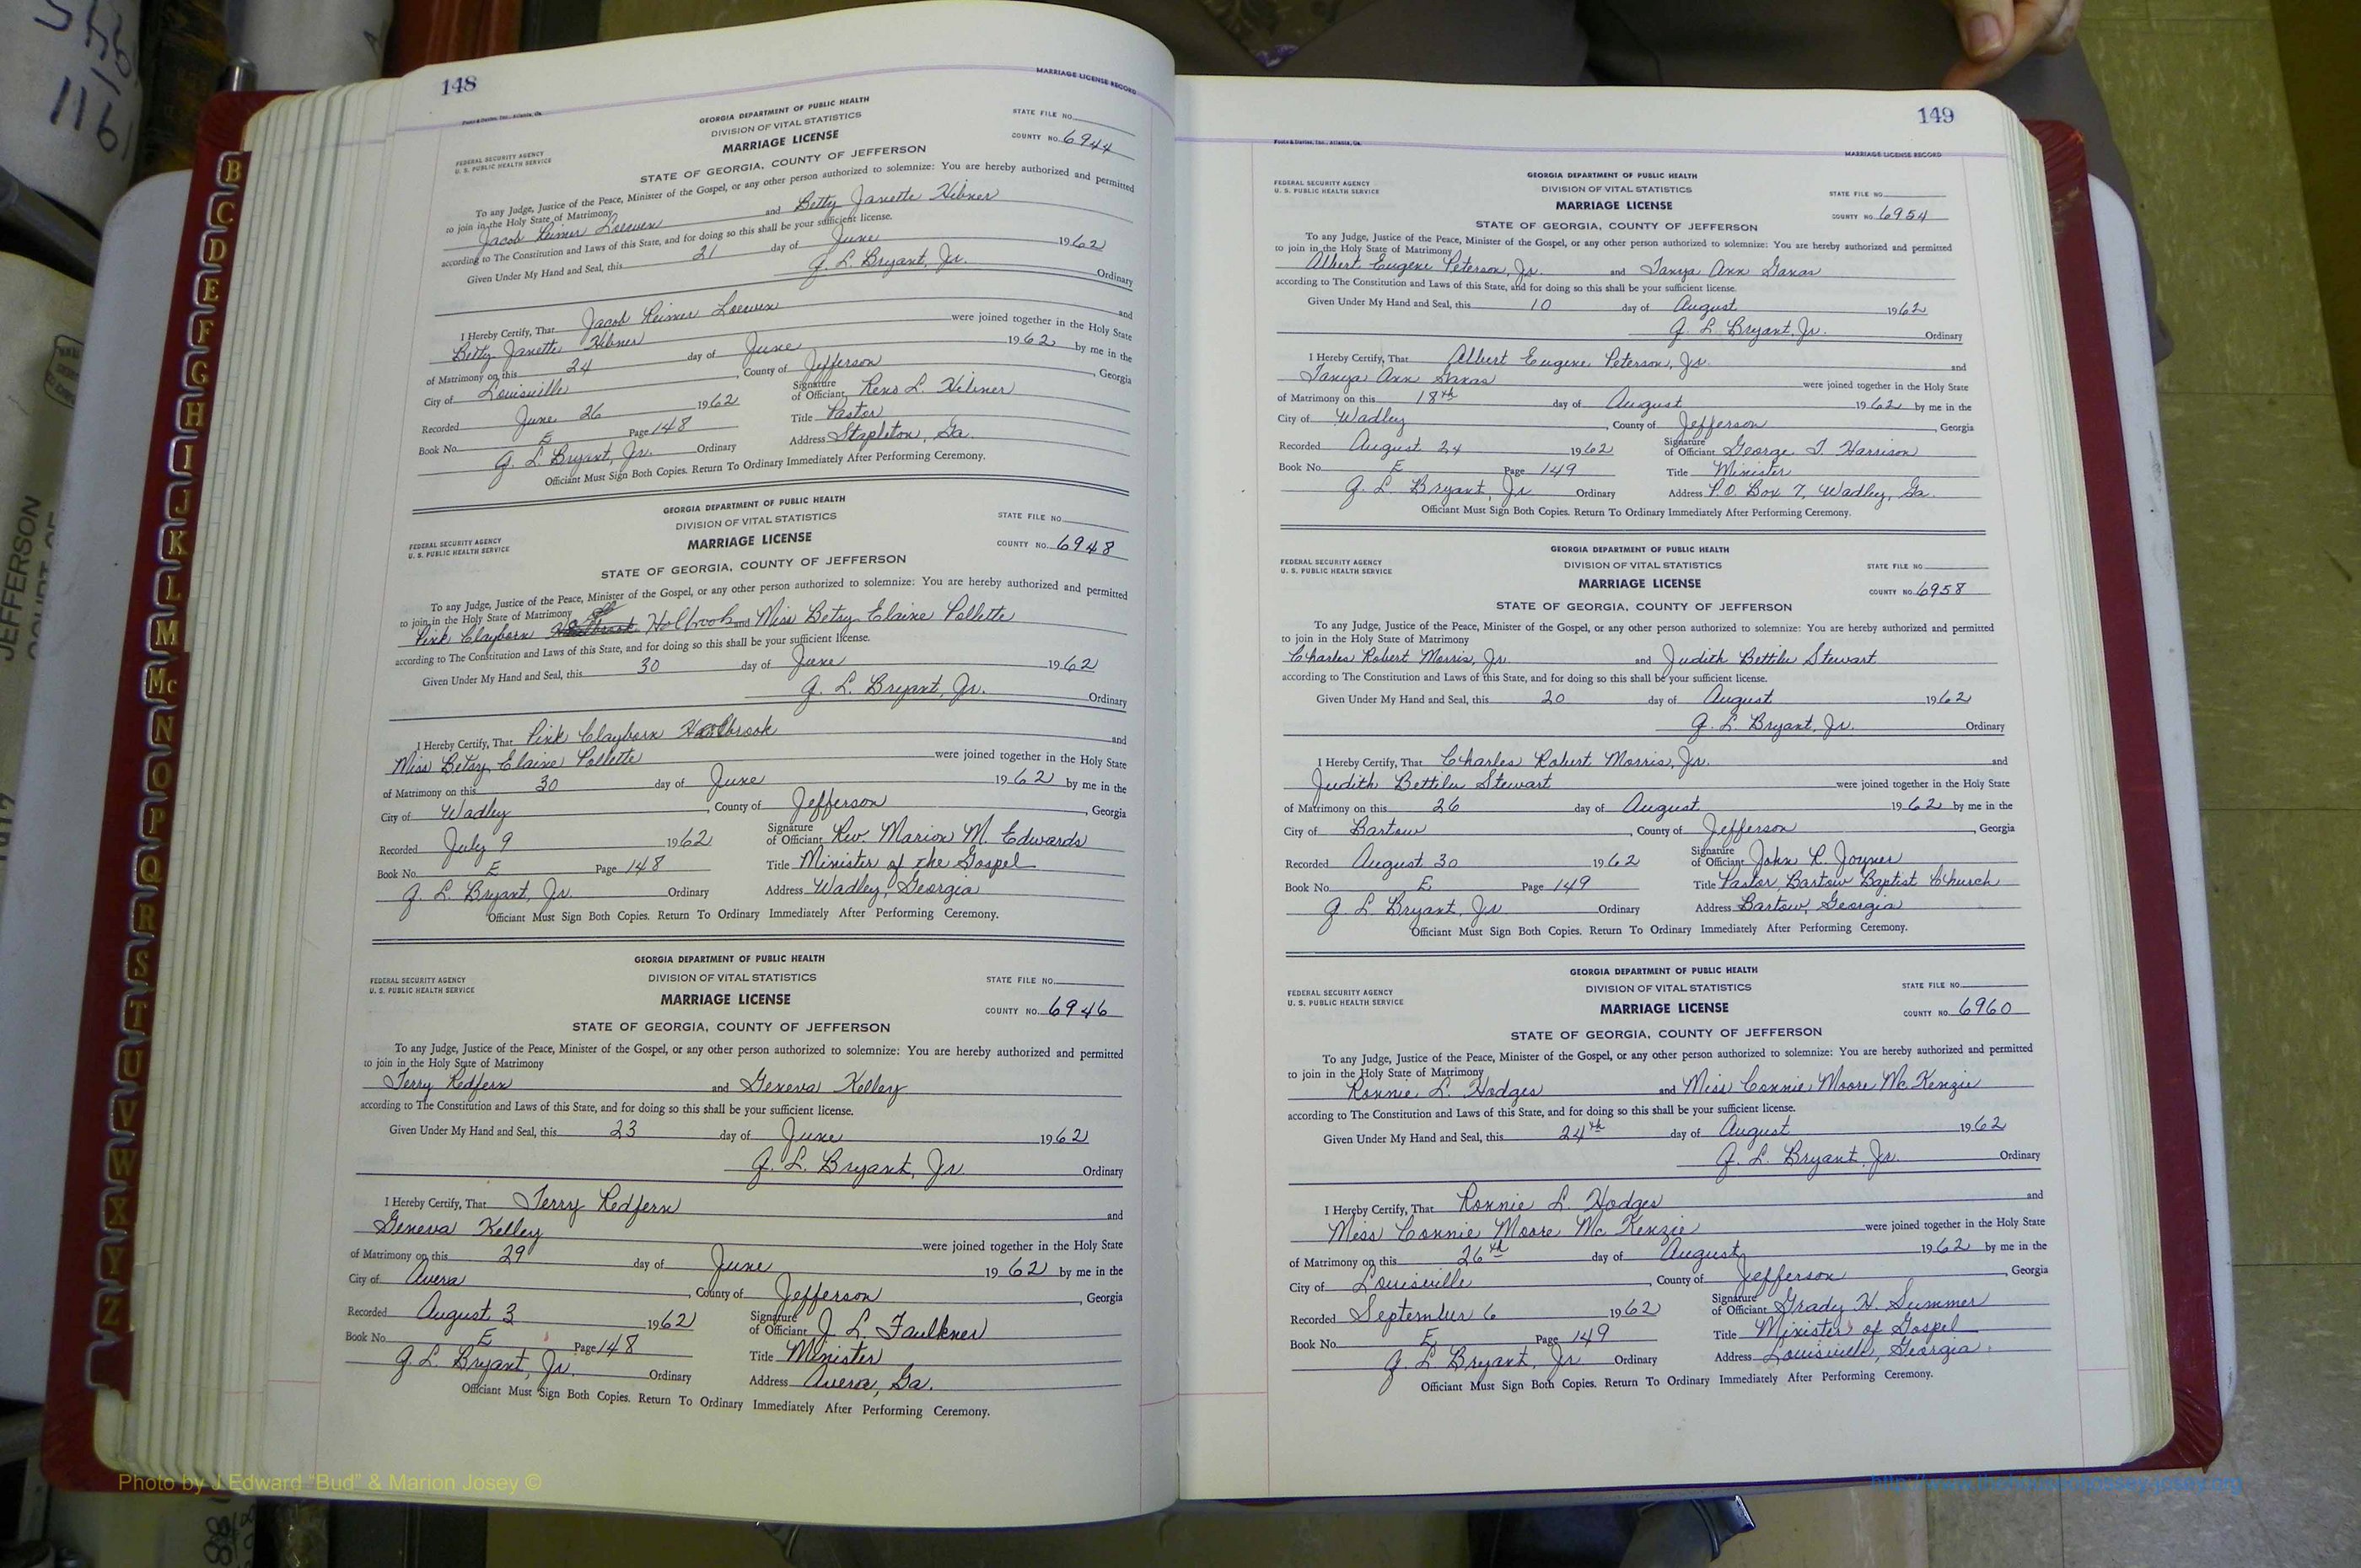 148
MARRIAGE LICENSE RECORD
Foote & Davies, Inc., Atlanta, Ga.
GEORGIA DEPARTMENT OF PUBLIC HEALTH
DIVISION OF VITAL STATISTICS
MARRIAGE LICENSE
STATE OF GEORGIA, COUNTY OF JEFFERSON
FEDERAL SECURITY AGENCY
U. S. PUBLIC HEALTH SERVICE
STATE FILE NO.
COUNTY NO. 6944
To any Judge, Justice of the Peace, Minister of the Gospel, or any other person authorized to solemnize: You are hereby authorized and permitted
to join in the Holy State of Matrimony
Jacob Reimer Loewen and Betty Janette Hibner
according to The Constitution and Laws of this State, and for doing so this shall be your sufficient license.
Given Under My Hand and Seal, this 21 day of June 1962
G. L. Bryant, Jr. Ordinary
I Hereby Certify, That Jacob Reimer Loewen and
Betty Janette Hibner were joined together in the Holy State
of Matrimony on this 24 day of June 1962 by me in the
City of Louisville, County of Jefferson, Georgia
Recorded June 26 1962 Signature of Officiant Reno L. Hibner
Book No. E Page 148 Title Pastor
G. L. Bryant, Jr. Ordinary Address Stapleton, Ga.
Officiant Must Sign Both Copies. Return To Ordinary Immediately After Performing Ceremony.
GEORGIA DEPARTMENT OF PUBLIC HEALTH
DIVISION OF VITAL STATISTICS
MARRIAGE LICENSE
STATE OF GEORGIA, COUNTY OF JEFFERSON
FEDERAL SECURITY AGENCY
U. S. PUBLIC HEALTH SERVICE
STATE FILE NO.
COUNTY NO. 6948
To any Judge, Justice of the Peace, Minister of the Gospel, or any other person authorized to solemnize: You are hereby authorized and permitted
to join in the Holy State of Matrimony
Pink Clayborn Holbrook and Miss Betsy Elaine Pollette
according to The Constitution and Laws of this State, and for doing so this shall be your sufficient license.
Given Under My Hand and Seal, this 30 day of June 1962
G. L. Bryant, Jr. Ordinary
I Hereby Certify, That Pink Clayborn Holbrook and
Miss Betsy Elaine Pollette were joined together in the Holy State
of Matrimony on this 30 day of June 1962 by me in the
City of Wadley, County of Jefferson, Georgia
Recorded July 9 1962 Signature of Officiant Rev. Marion M. Edwards
Book No. E Page 148 Title Minister of the Gospel
G. L. Bryant, Jr. Ordinary Address Wadley, Georgia
Officiant Must Sign Both Copies. Return To Ordinary Immediately After Performing Ceremony.
GEORGIA DEPARTMENT OF PUBLIC HEALTH
DIVISION OF VITAL STATISTICS
MARRIAGE LICENSE
STATE OF GEORGIA, COUNTY OF JEFFERSON
FEDERAL SECURITY AGENCY
U. S. PUBLIC HEALTH SERVICE
STATE FILE NO.
COUNTY NO. 6946
To any Judge, Justice of the Peace, Minister of the Gospel, or any other person authorized to solemnize: You are hereby authorized and permitted
to join in the Holy State of Matrimony
Terry Redfern and Geneva Kelley
according to The Constitution and Laws of this State, and for doing so this shall be your sufficient license.
Given Under My Hand and Seal, this 23 day of June 1962
G. L. Bryant, Jr. Ordinary
I Hereby Certify, That Terry Redfern and
Geneva Kelley were joined together in the Holy State
of Matrimony on this 29 day of June 1962 by me in the
City of Avera, County of Jefferson, Georgia
Recorded August 3 1962 Signature of Officiant J. L. Faulkner
Book No. E Page 148 Title Minister
G. L. Bryant, Jr. Ordinary Address Avera, Ga.
Officiant Must Sign Both Copies. Return To Ordinary Immediately After Performing Ceremony.
149
Foote & Davies, Inc., Atlanta, Ga.
MARRIAGE LICENSE RECORD
GEORGIA DEPARTMENT OF PUBLIC HEALTH
DIVISION OF VITAL STATISTICS
MARRIAGE LICENSE
STATE OF GEORGIA, COUNTY OF JEFFERSON
FEDERAL SECURITY AGENCY
U. S. PUBLIC HEALTH SERVICE
STATE FILE NO.
COUNTY NO. 6954
To any Judge, Justice of the Peace, Minister of the Gospel, or any other person authorized to solemnize: You are hereby authorized and permitted
to join in the Holy State of Matrimony
Albert Eugene Peterson, Jr. and Tanya Ann Ganas
according to The Constitution and Laws of this State, and for doing so this shall be your sufficient license.
Given Under My Hand and Seal, this 10 day of August 1962
G. L. Bryant, Jr. Ordinary
I Hereby Certify, That Albert Eugene Peterson, Jr. and
Tanya Ann Ganas were joined together in the Holy State
of Matrimony on this 18th day of August 1962 by me in the
City of Wadley, County of Jefferson, Georgia
Recorded August 24 1962 Signature of Officiant George T. Harrison
Book No. E Page 149 Title Minister
G. L. Bryant, Jr Ordinary Address P.O. Box 7, Wadley, Ga.
Officiant Must Sign Both Copies. Return To Ordinary Immediately After Performing Ceremony.
GEORGIA DEPARTMENT OF PUBLIC HEALTH
DIVISION OF VITAL STATISTICS
MARRIAGE LICENSE
STATE OF GEORGIA, COUNTY OF JEFFERSON
FEDERAL SECURITY AGENCY
U. S. PUBLIC HEALTH SERVICE
STATE FILE NO.
COUNTY NO. 6958
To any Judge, Justice of the Peace, Minister of the Gospel, or any other person authorized to solemnize: You are hereby authorized and permitted
to join in the Holy State of Matrimony
Charles Robert Morris, Jr. and Judith Bettilu Stewart
according to The Constitution and Laws of this State, and for doing so this shall be your sufficient license.
Given Under My Hand and Seal, this 20 day of August 1962
G. L. Bryant, Jr. Ordinary
I Hereby Certify, That Charles Robert Morris, Jr. and
Judith Bettilu Stewart were joined together in the Holy State
of Matrimony on this 26 day of August 1962 by me in the
City of Bartow, County of Jefferson, Georgia
Recorded August 30 1962 Signature of Officiant John R. Joyner
Book No. E Page 149 Title Pastor, Bartow Baptist Church
G. L. Bryant, Jr Ordinary Address Bartow, Georgia
Officiant Must Sign Both Copies. Return To Ordinary Immediately After Performing Ceremony.
GEORGIA DEPARTMENT OF PUBLIC HEALTH
DIVISION OF VITAL STATISTICS
MARRIAGE LICENSE
STATE OF GEORGIA, COUNTY OF JEFFERSON
FEDERAL SECURITY AGENCY
U. S. PUBLIC HEALTH SERVICE
STATE FILE NO.
COUNTY NO. 6960
To any Judge, Justice of the Peace, Minister of the Gospel, or any other person authorized to solemnize: You are hereby authorized and permitted
to join in the Holy State of Matrimony
Ronnie L. Hodges and Miss Connie Moore McKenzie
according to The Constitution and Laws of this State, and for doing so this shall be your sufficient license.
Given Under My Hand and Seal, this 24th day of August 1962
G. L. Bryant, Jr. Ordinary
I Hereby Certify, That Ronnie L. Hodges and
Miss Connie Moore McKenzie were joined together in the Holy State
of Matrimony on this 26th day of August 1962 by me in the
City of Louisville, County of Jefferson, Georgia
Recorded September 6 1962 Signature of Officiant Grady H. Summer
Book No. E Page 149 Title Minister of Gospel
G. L. Bryant, Jr Ordinary Address Louisville, Georgia.
Officiant Must Sign Both Copies. Return To Ordinary Immediately After Performing Ceremony.
B
C
D
E
F
G
H
I
J
K
L
M
Mc
N
O
P
Q
R
S
T
U
V
W
X
Y
Z
JEFFERSON
Photo by J Edward "Bud" & Marion Josey ©